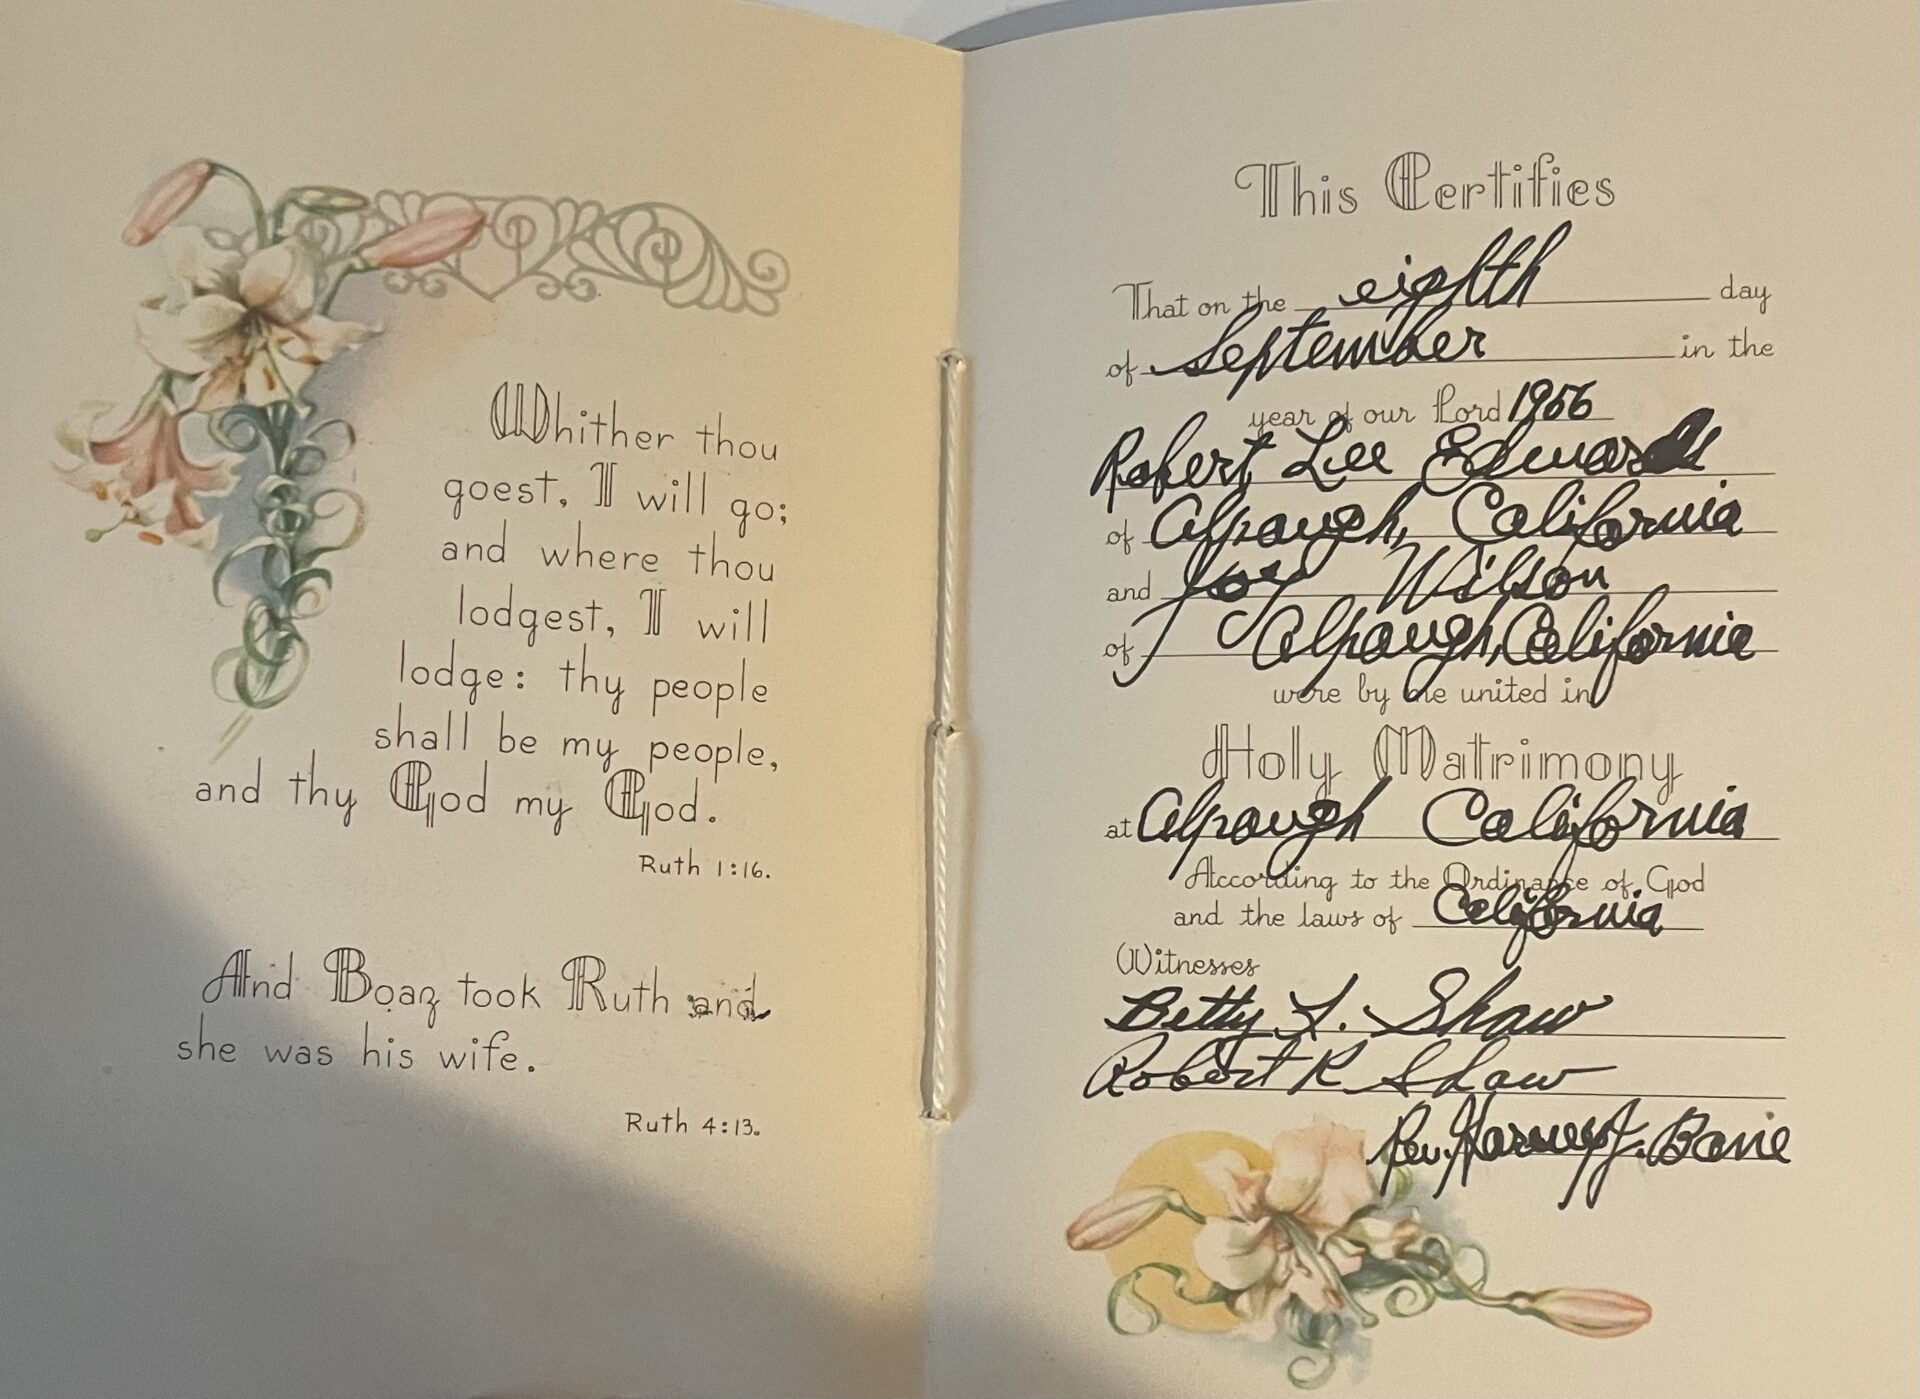 Whither thou
goest, I will go;
and where thou
lodgest, I will
lodge: thy people
shall be my people,
and thy God my God.
Ruth 1:16.
And Boaz took Ruth and
she was his wife.
Ruth 4:13.
This Certifies
That on the eighth day
of September in the
year of our Lord 1956
Robert Lee Edwards
of Alpaugh, California
and Joy Wilson
of Alpaugh, California
were by me united in
Holy Matrimony
at Alpaugh California
According to the Ordinance of God
and the laws of California
Witnesses
Betty L. Shaw
Robert R Shaw
Rev. Harvey J.